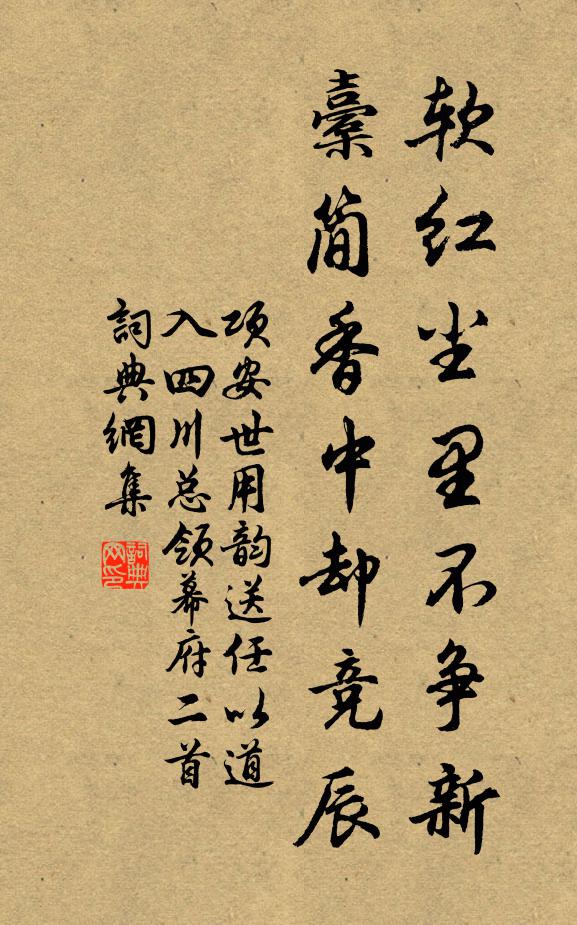 软红尘里不争新
橐简香中却竞辰
项安世用韵送任以道
入四川总领幕府二首
詞典網集
詞典
网印